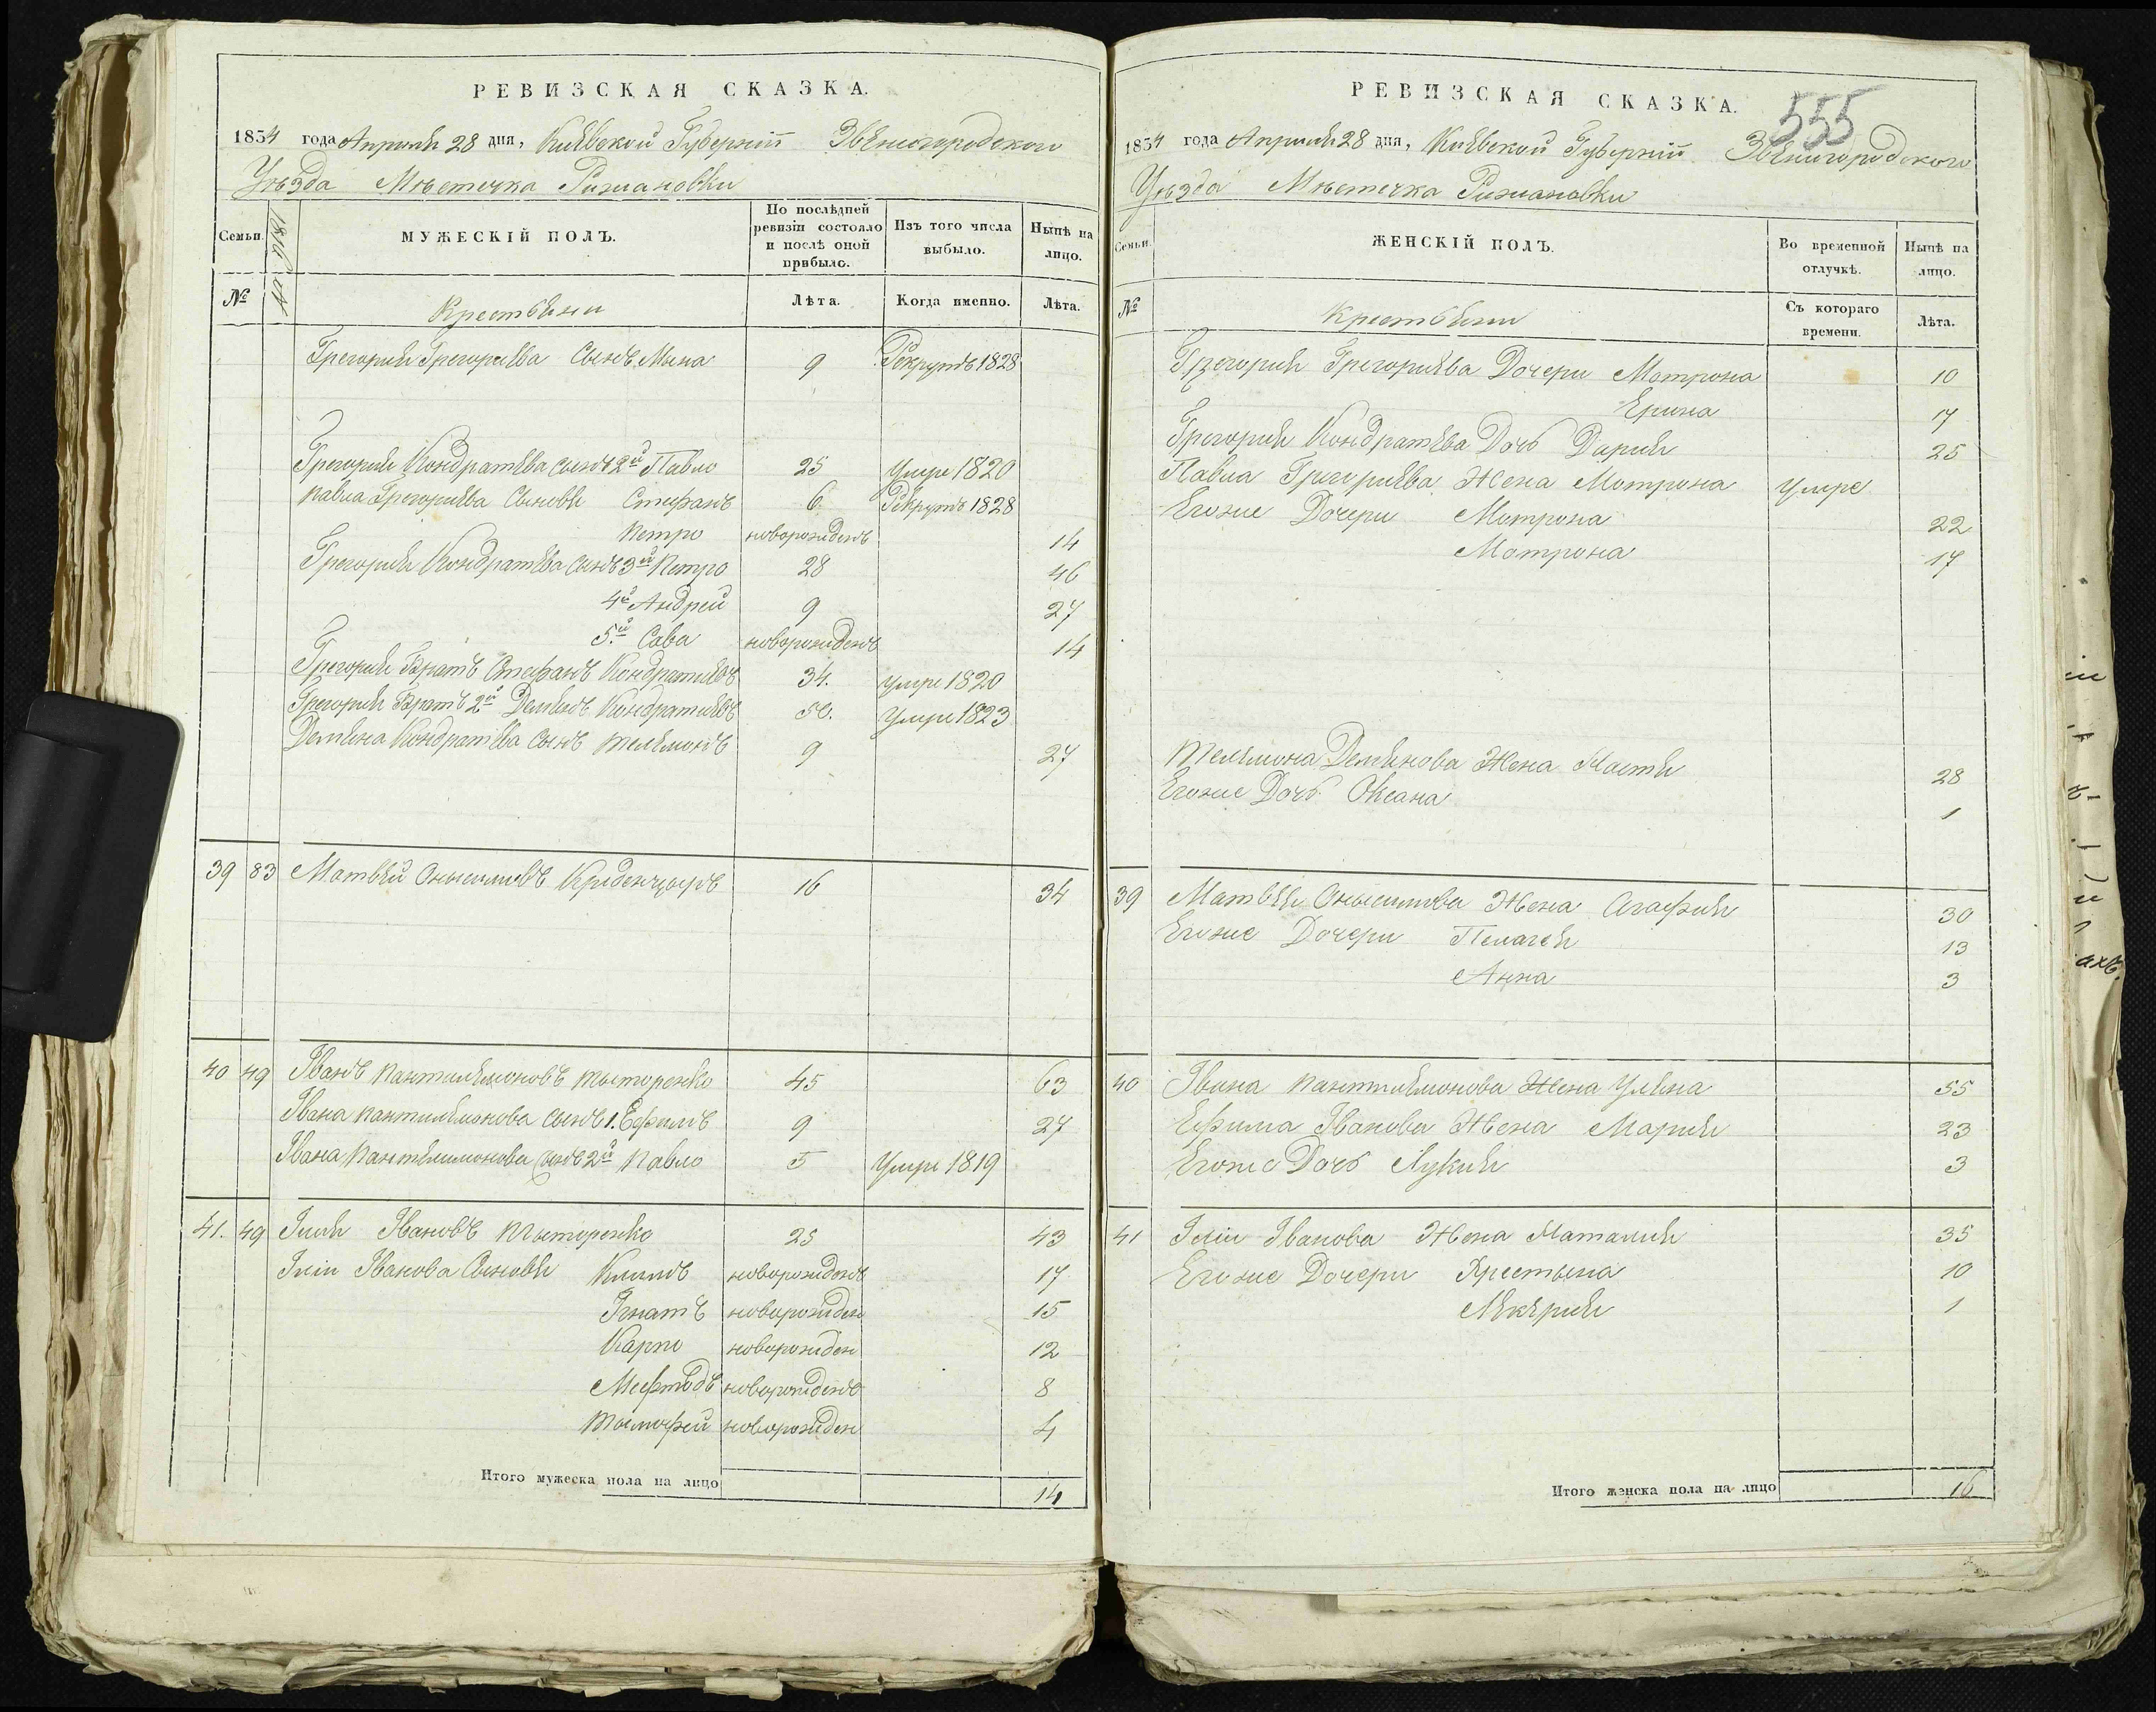 РЕВИЗСКАЯ СКАЗКА.
1834 года Апреля 28 дня, Киевской Губернии Звенигородского
Уезда Местечка Рижановки
Семьи.
МУЖЕСКІЙ ПОЛЪ.
По послѣдней ревизіи состояло и послѣ оной прибыло.
Изъ того числа выбыло.
Нынѣ на лицо.
№ Крестьяни Лѣта. Когда именно. Лѣта.
Грегория Грегориева Сынъ Мина 9 Рекрутъ 1828
Грегория Кондратева сынъ 2й Павло 25 умре 1820
Павла Грегориева Сынове Стефанъ 6. Рекрутъ 1828
Петро новорожденъ 14
Грегория Кондратева сынъ 3й Петро 28 46
4й Андрей 9 27
5й Сава новорожденъ 14
Грегория Братъ Стефанъ Кондратиевъ 34. умре 1820
Грегория Братъ 2й Демянъ Кондратиевъ 50. умре 1823
Демяна Кондратева Сынъ Телемонъ 9 27
39 83 Матвей Онысимовъ 16 34
40 49 Іванъ Пантилемоновъ Тыторенко 45 63
Івана Пантилемонова сынъ 1. Ефимъ 9 27
Івана Пантелимонова сынъ 2й Павло 5 умре 1819
41. 49 Илия Івановъ Тыторенко 25 43
Іліи Іванова Сынове Климъ новорожденъ 17
Ігнатъ новорожден 15
Карпо новорожден 12
Мефтодъ новорожденъ 8
Тымофей новорожден 4
Итого мужеска пола на лицо 14
РЕВИЗСКАЯ СКАЗКА.
555
1834 года Апреля 28 дня, Киевской Губернии Звенигородского
Уезда Местечка Рижановки
Семьи.
ЖЕНСКІЙ ПОЛЪ.
Во временной отлучкѣ.
Нынѣ на лицо.
№ Крестьяни Съ котораго времени. Лѣта.
Грегория Грегориева Дочери Мотрона 10
Ерина 7
Грегория Кондратева Дочь Дария 25
Павла Григориева Жена Мотрона умре
Егоже Дочери Мотрона 22
Мотрона 17
Телемона Демянова Жена Настя 28
Егоже Дочь Оксана 1
39 Матвея Онысимова Жена Агафия 30
Егоже Дочери Пелагея 13
Анна 3
40 Івана Пантилемонова Жена Уляна 55
Ефима Іванова Жена Мария 23
Егоже Дочь Лукия 3
41 Іліи Іванова Жена Наталия 35
Егоже Дочери Христына 10
Лекерия 1
Итого женска пола на лицо 16